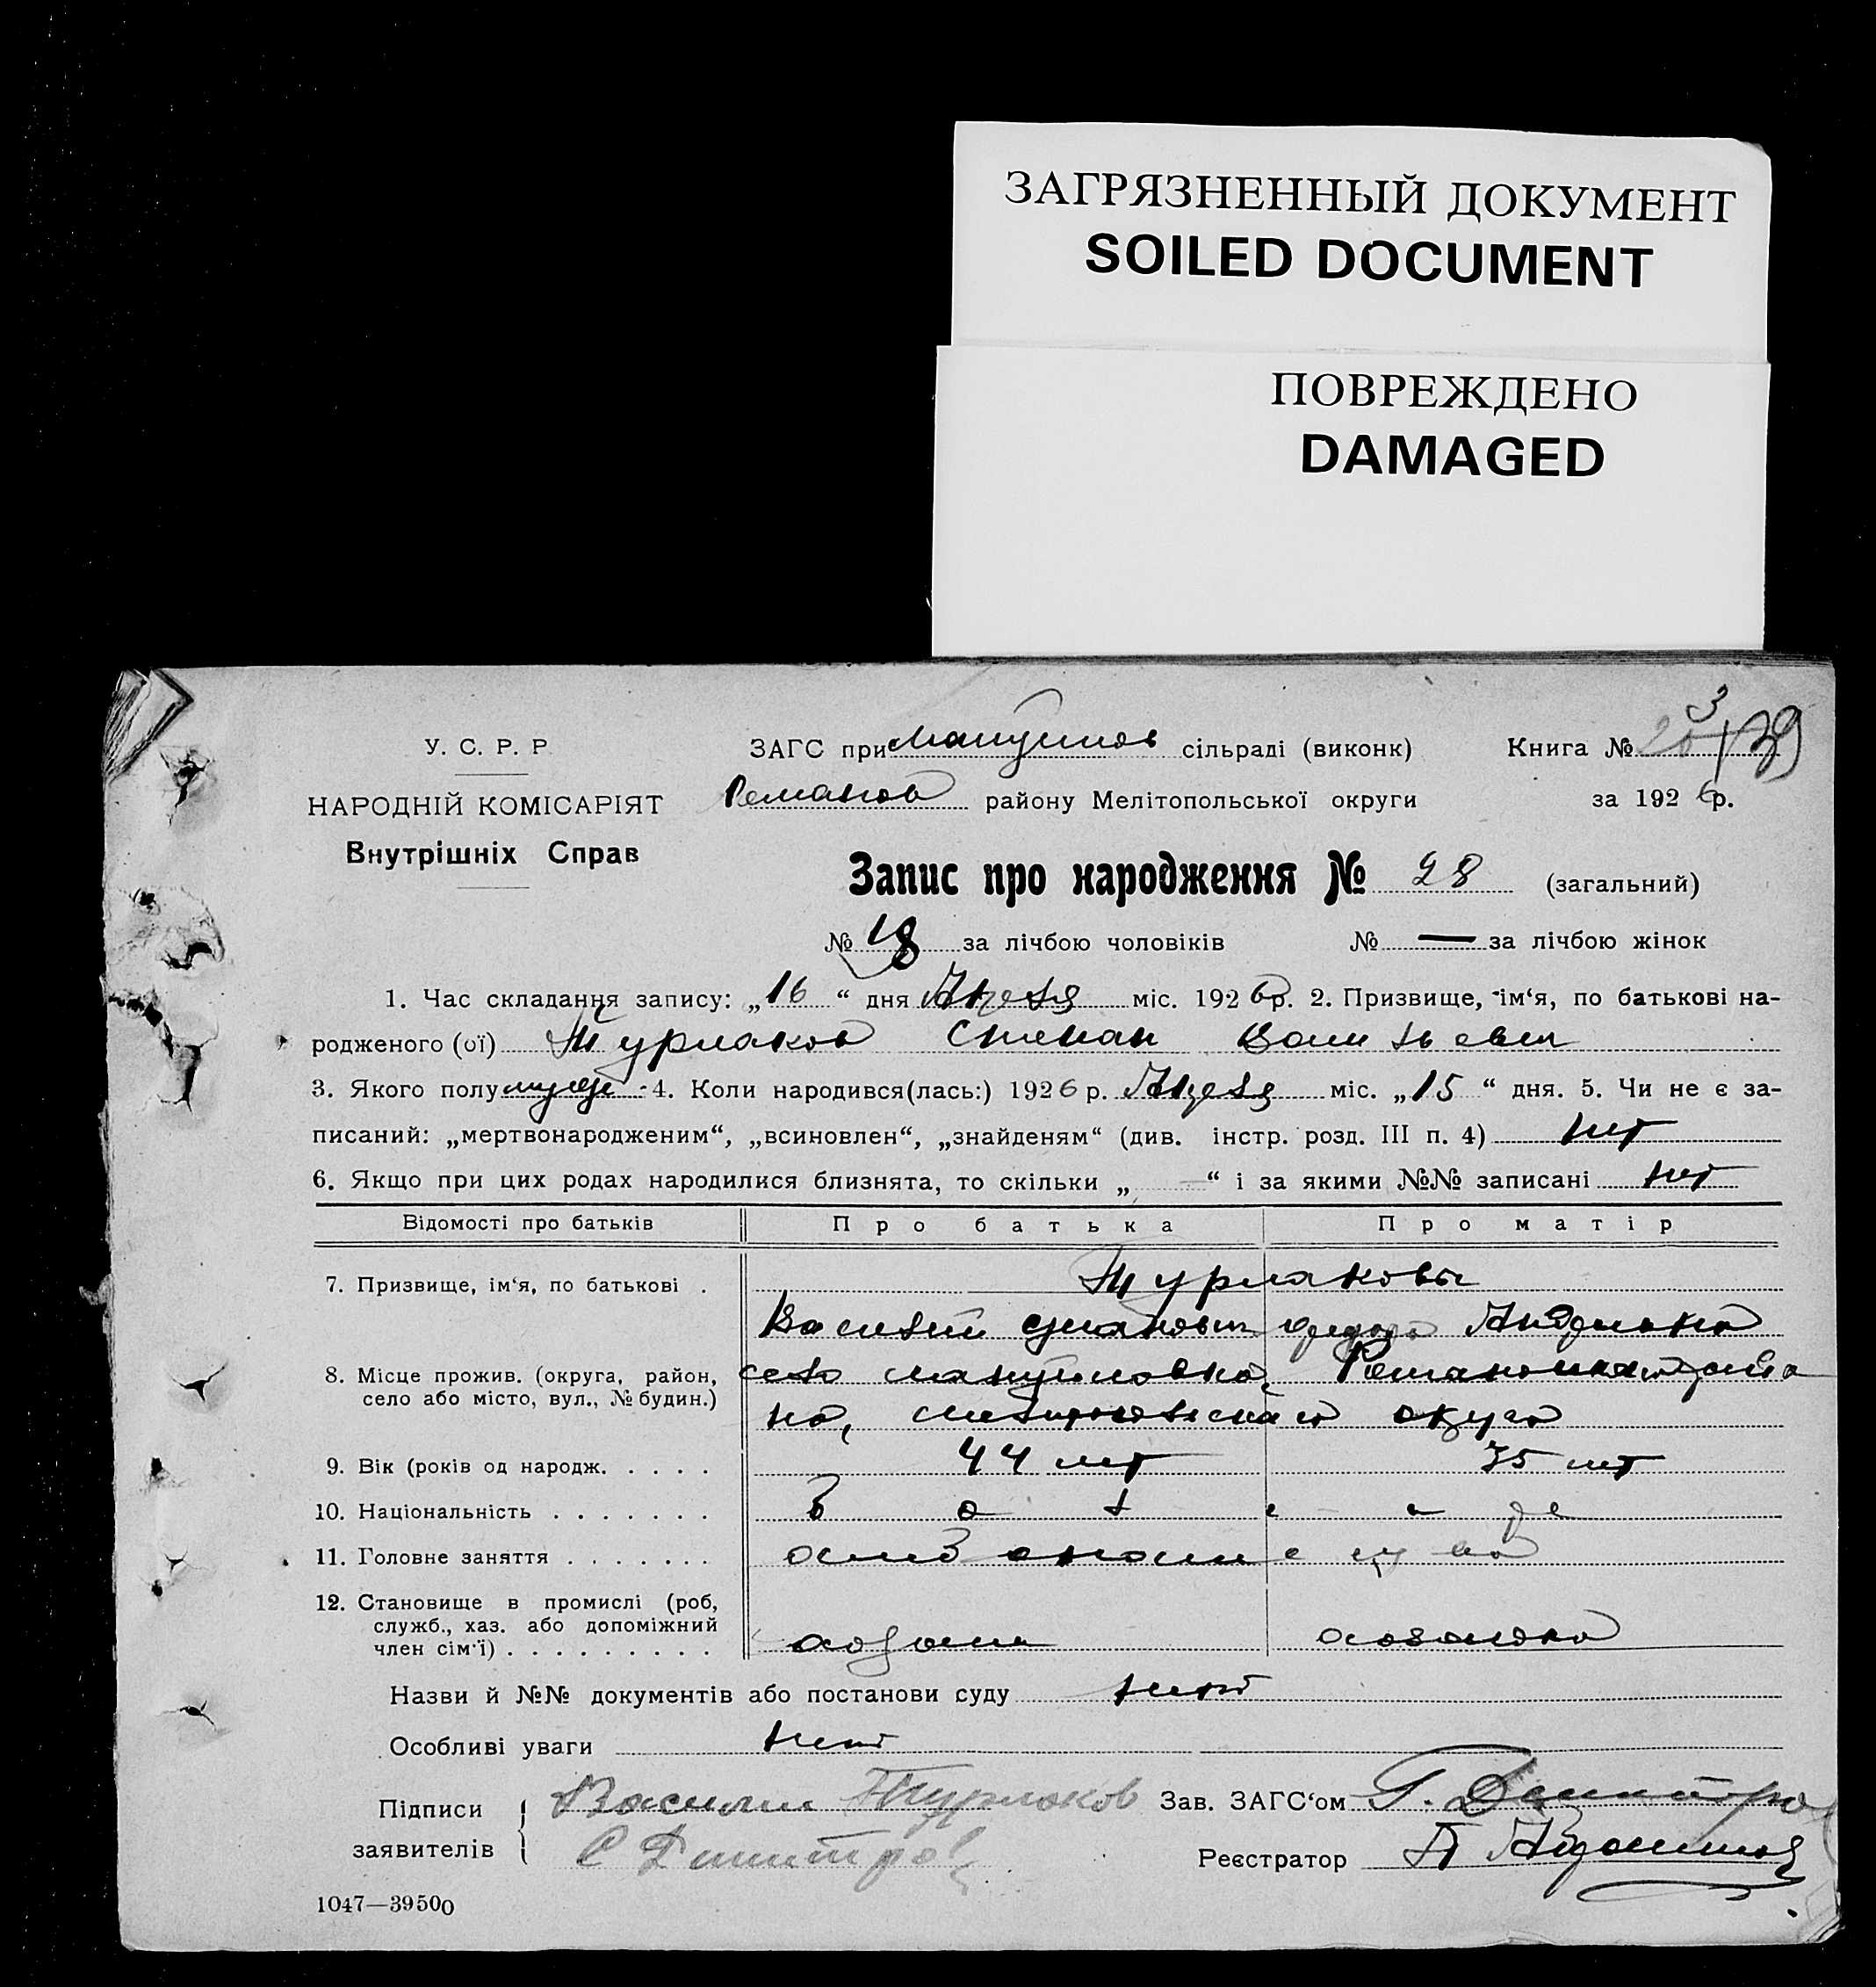 ЗАГРЯЗНЕННЫЙ ДОКУМЕНТ
SOILED DOCUMENT
ПОВРЕЖДЕНО
DAMAGED
У. С. Р. Р.
НАРОДНІЙ КОМІСАРІЯТ
Внутрішніх Справ
ЗАГС при Мануйлов сільраді (виконк) Книга №
Романов району Мелітопольської округи за 1926 р.
Запис про народження № 28 (загальний)
№ 18 за лічбою чоловіків № — за лічбою жінок
1. Час складання запису: „16“ дня Апреля міс. 1926 р. 2. Призвище, ім‘я, по батькові на-
родженого (ої) Турлаков Степан Васильевич
3. Якого полу муж 4. Коли народився(лась:) 1926 р. Апреля міс. „15“ дня. 5. Чи не є за-
писаний: „мертвонародженим“, „всиновлен“, „знайденям“ (див. інстр. розд. III п. 4) нет
6. Якщо при цих родах народилися близнята, то скільки „—“ і за якими №№ записані нет
Відомості про батьків Про батька Про матір
7. Призвище, ім‘я, по батькові . Турлаковы
Василий
8. Місце прожив. (округа, район, село або місто, вул., № будин.) село Мануйловка, Романовского райо
на, Мелитопольского округа
9. Вік (років од народж. . . . . 44 лет 35 лет
10. Національність . . . . . . .
11. Головне заняття . . . . . . .
12. Становище в промислі (роб, служб., хаз. або допоміжний член сім‘ї) . . . . . . . . .
Назви й №№ документів або постанови суду нет
Особливі уваги нет
Підписи заявителів Василий Турлаков Зав. ЗАГС‘ом Г. Димитров
С Димитров Реєстратор
1047—39500